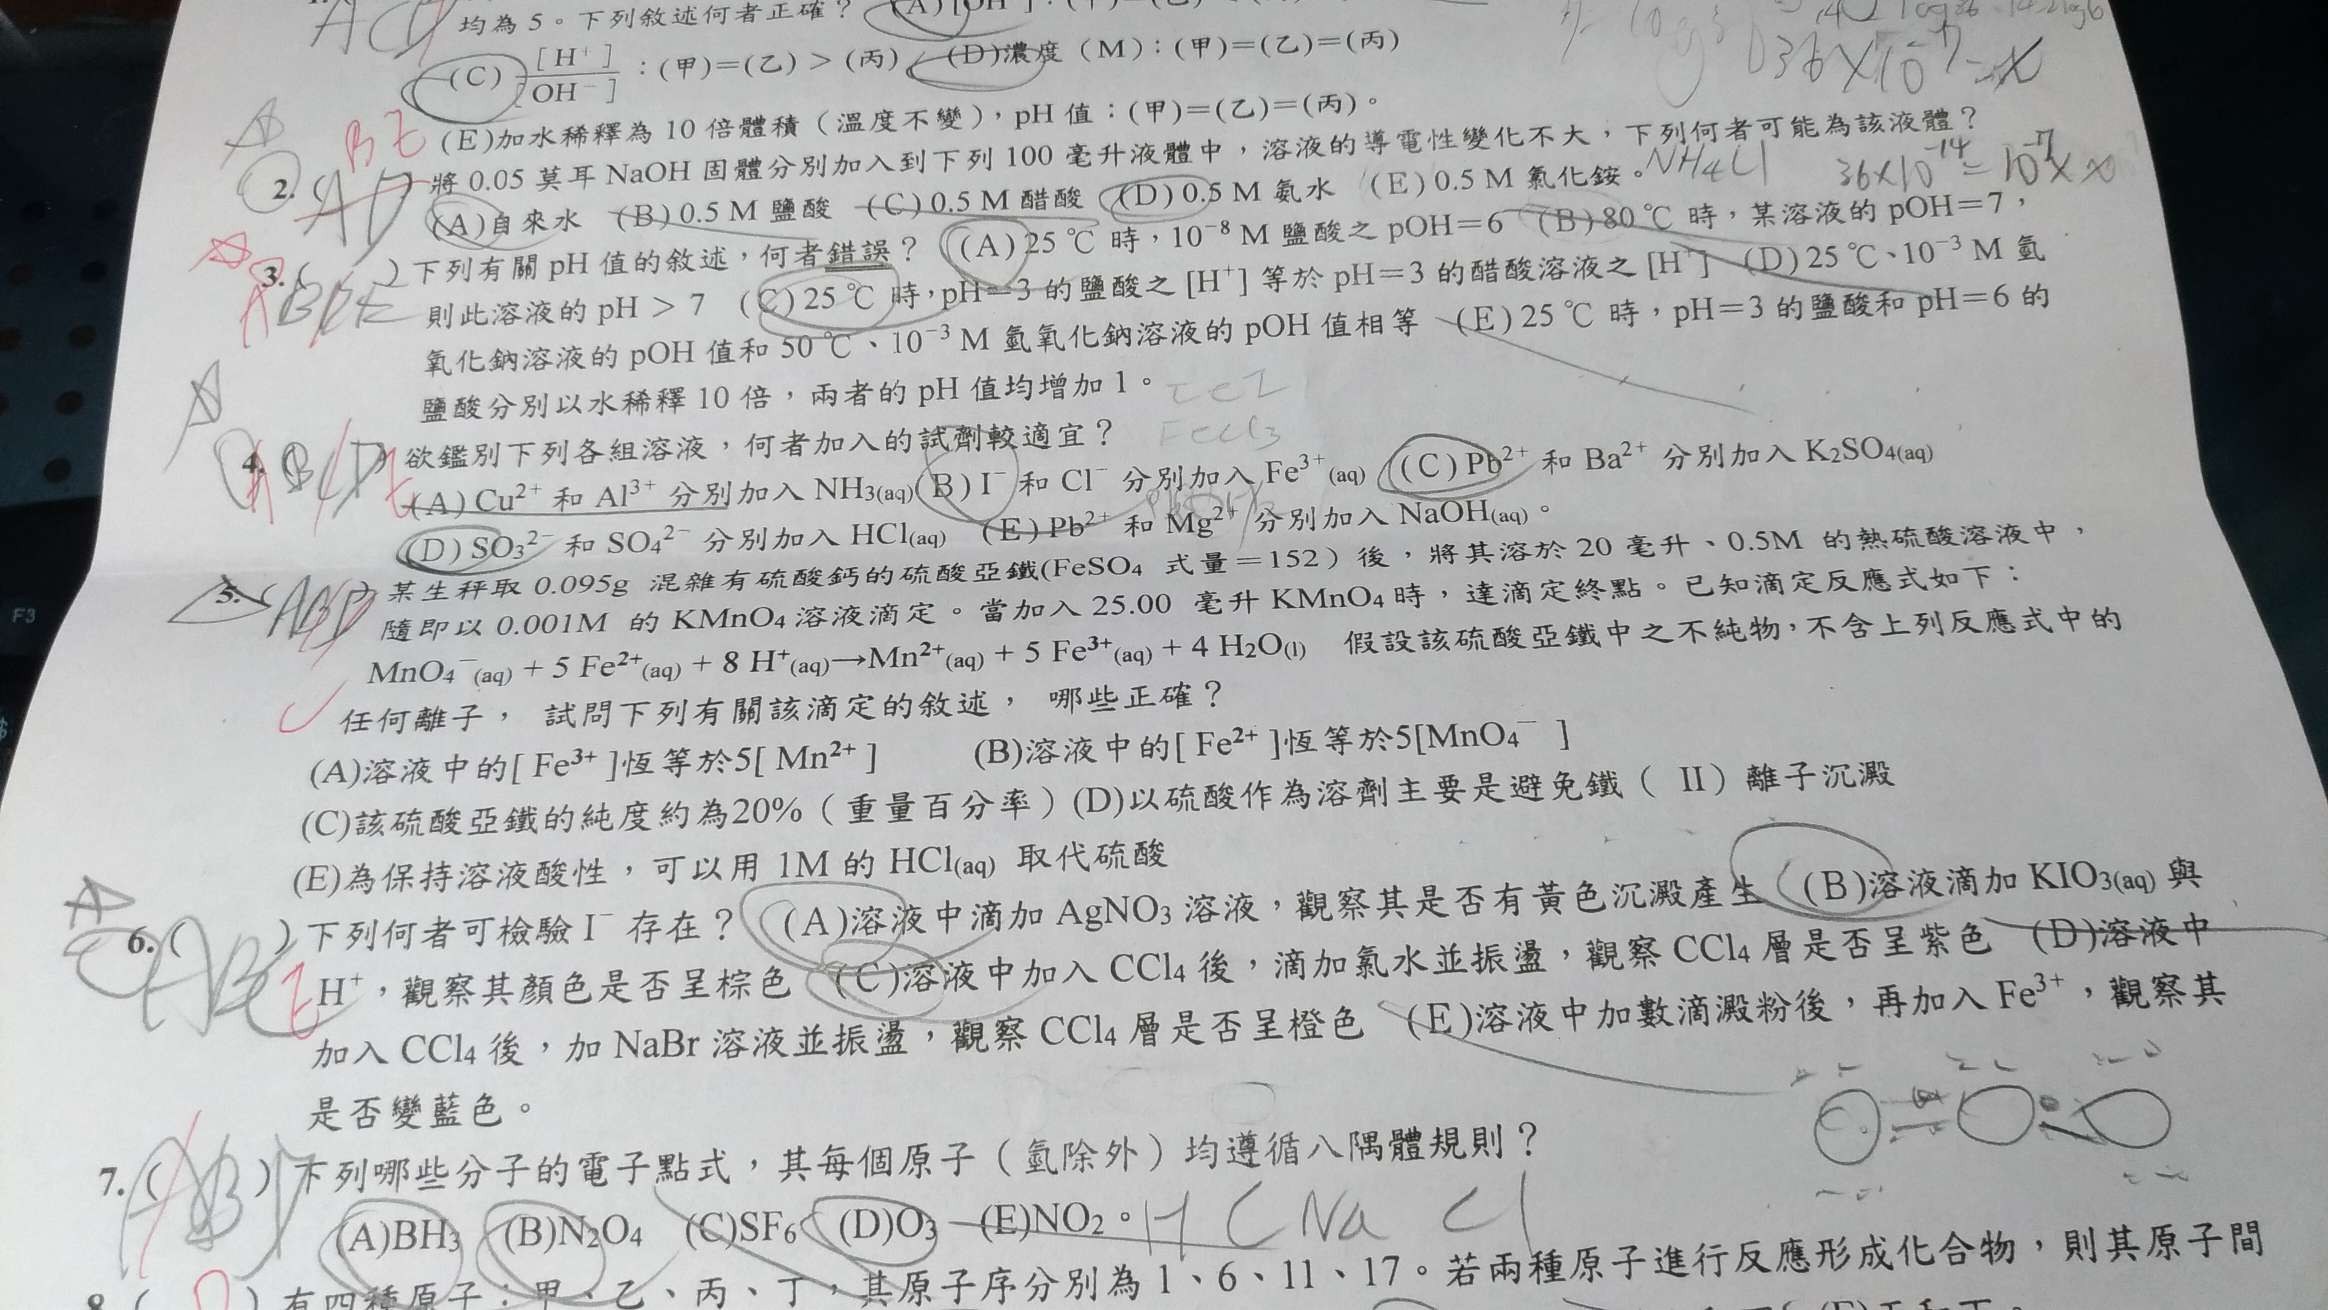 均為 5。下列敘述何者正確？ (A)[OH⁻]：(甲)=(乙)
(C) [H⁺]/[OH⁻]：(甲)=(乙) > (丙) (D)濃度（M）：(甲)=(乙)=(丙)
(E)加水稀釋為 10 倍體積（溫度不變），pH 值：(甲)=(乙)=(丙)。
2. ( AD ) 將 0.05 莫耳 NaOH 固體分別加入到下列 100 毫升液體中，溶液的導電性變化不大，下列何者可能為該液體？
BE
(A)自來水 (B) 0.5 M 鹽酸 (C) 0.5 M 醋酸 (D) 0.5 M 氨水 (E) 0.5 M 氯化銨。 NH4Cl
36×10⁻¹⁴ = 10⁻⁷ × x
36×10⁻⁷ = x
3. ( ) 下列有關 pH 值的敘述，何者錯誤？ (A) 25 ℃ 時，10⁻⁸ M 鹽酸之 pOH=6 (B) 80 ℃ 時，某溶液的 pOH=7，
則此溶液的 pH > 7 (C) 25 ℃ 時，pH=3 的鹽酸之 [H⁺] 等於 pH=3 的醋酸溶液之 [H⁺] (D) 25 ℃、10⁻³ M 氫
氧化鈉溶液的 pOH 值和 50 ℃、10⁻³ M 氫氧化鈉溶液的 pOH 值相等 (E) 25 ℃ 時，pH=3 的鹽酸和 pH=6 的
鹽酸分別以水稀釋 10 倍，兩者的 pH 值均增加 1。
FeCl3
4. ( ) 欲鑑別下列各組溶液，何者加入的試劑較適宜？
(A) Cu²⁺ 和 Al³⁺ 分別加入 NH₃(aq) (B) I⁻ 和 Cl⁻ 分別加入 Fe³⁺(aq) (C) Pb²⁺ 和 Ba²⁺ 分別加入 K₂SO₄(aq)
(D) SO₃²⁻ 和 SO₄²⁻ 分別加入 HCl(aq) (E) Pb²⁺ 和 Mg²⁺ 分別加入 NaOH(aq)。
5. ( ABD ) 某生秤取 0.095g 混雜有硫酸鈣的硫酸亞鐵(FeSO₄ 式量＝152）後，將其溶於 20 毫升、0.5M 的熱硫酸溶液中，
隨即以 0.001M 的 KMnO₄ 溶液滴定。當加入 25.00 毫升 KMnO₄ 時，達滴定終點。已知滴定反應式如下：
MnO₄⁻(aq) + 5 Fe²⁺(aq) + 8 H⁺(aq)→Mn²⁺(aq) + 5 Fe³⁺(aq) + 4 H₂O(l) 假設該硫酸亞鐵中之不純物，不含上列反應式中的
任何離子， 試問下列有關該滴定的敘述， 哪些正確？
(A)溶液中的[ Fe³⁺ ]恆等於5[ Mn²⁺ ] (B)溶液中的[ Fe²⁺ ]恆等於5[MnO₄⁻ ]
(C)該硫酸亞鐵的純度約為20%（重量百分率）(D)以硫酸作為溶劑主要是避免鐵（ II）離子沉澱
(E)為保持溶液酸性，可以用 1M 的 HCl(aq) 取代硫酸
6. ( ABC ) 下列何者可檢驗 I⁻ 存在？ (A)溶液中滴加 AgNO₃ 溶液，觀察其是否有黃色沉澱產生 (B)溶液滴加 KIO₃(aq) 與
E
H⁺，觀察其顏色是否呈棕色 (C)溶液中加入 CCl₄ 後，滴加氯水並振盪，觀察 CCl₄ 層是否呈紫色 (D)溶液中
加入 CCl₄ 後，加 NaBr 溶液並振盪，觀察 CCl₄ 層是否呈橙色 (E)溶液中加數滴澱粉後，再加入 Fe³⁺，觀察其
是否變藍色。
7. ( ABD ) 下列哪些分子的電子點式，其每個原子（氫除外）均遵循八隅體規則？
(A)BH₃ (B)N₂O₄ (C)SF₆ (D)O₃ (E)NO₂。 H C Na Cl
8. ( ) 有四種原子：甲、乙、丙、丁，其原子序分別為 1、6、11、17。若兩種原子進行反應形成化合物，則其原子間